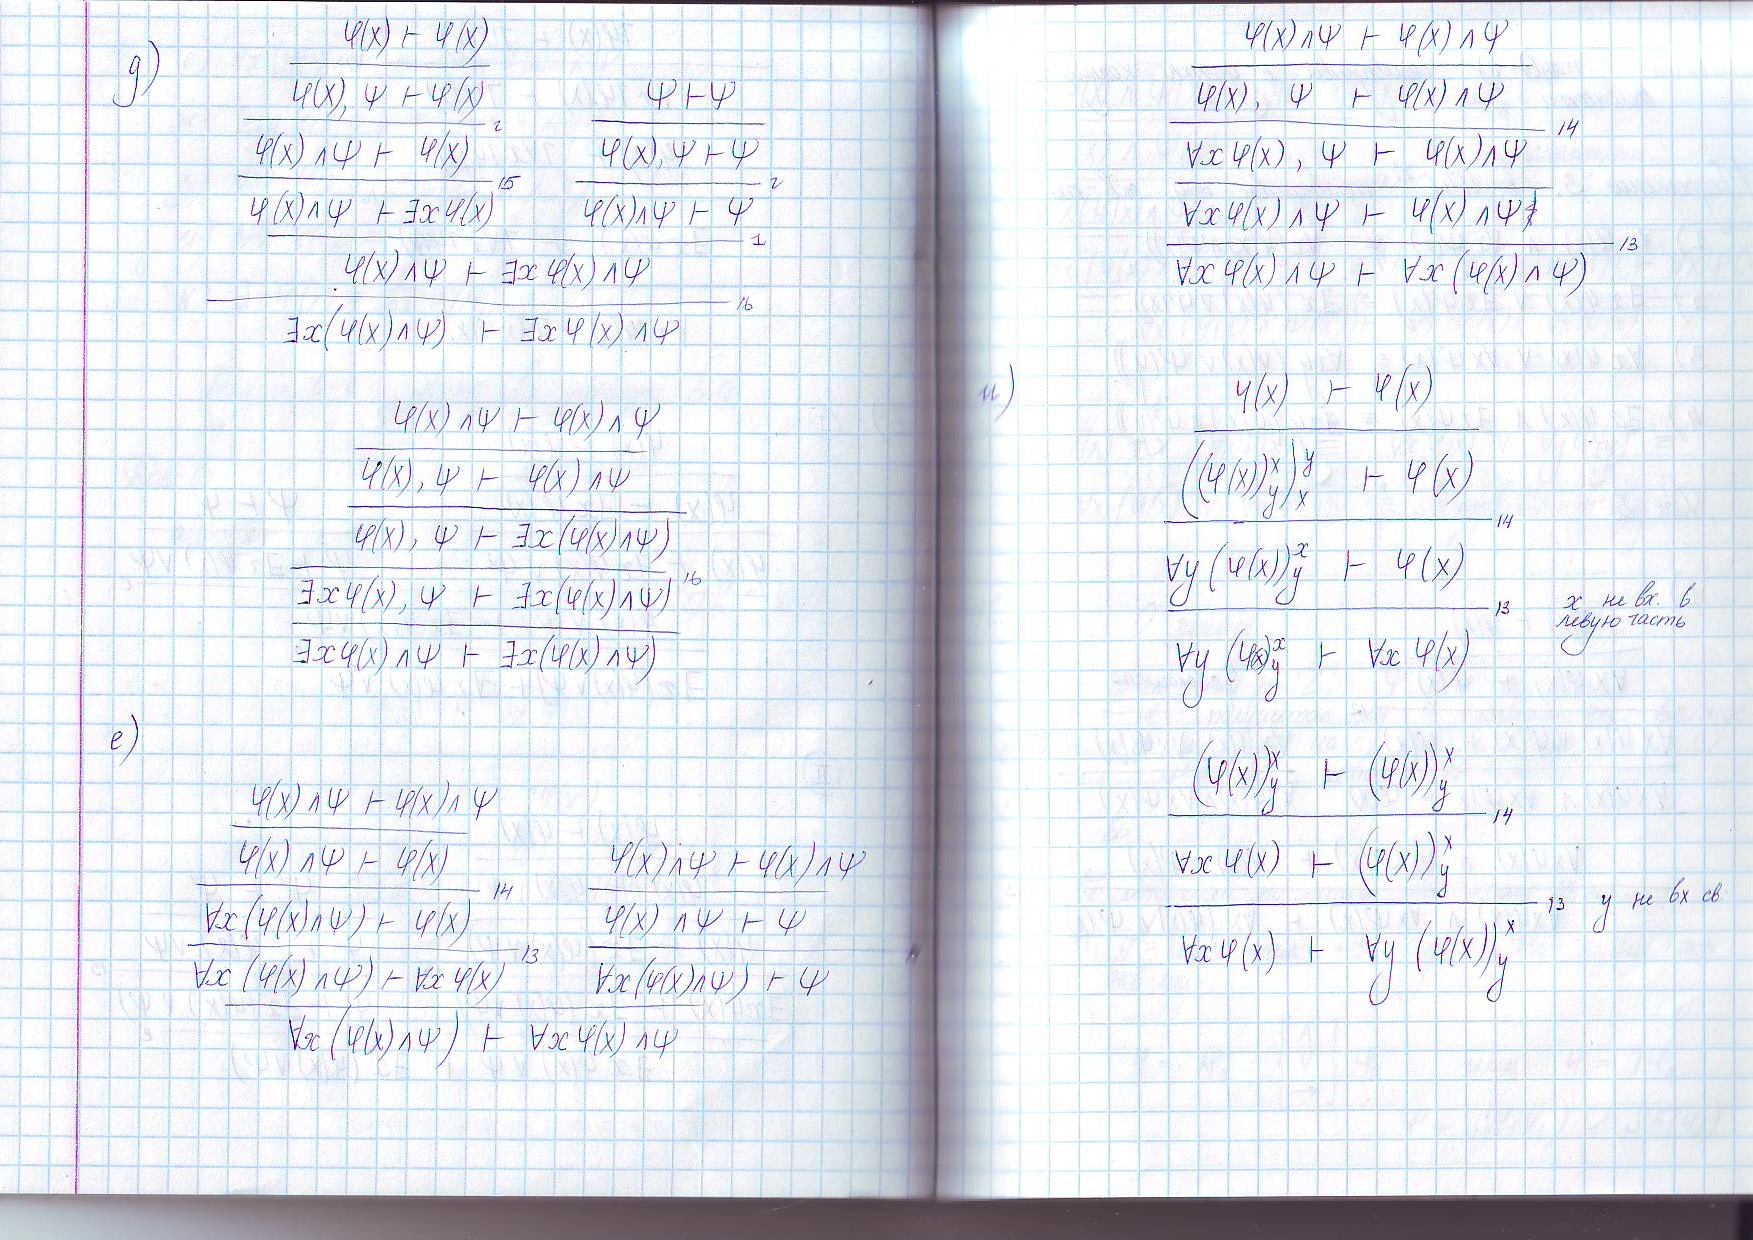 д)
φ(x) ⊢ φ(x)
φ(x), ψ ⊢ φ(x)
ψ ⊢ ψ
φ(x) ∧ ψ ⊢ φ(x) 2
φ(x), ψ ⊢ ψ
φ(x) ∧ ψ ⊢ ∃x φ(x) 15
φ(x) ∧ ψ ⊢ ψ 2
φ(x) ∧ ψ ⊢ ∃x φ(x) ∧ ψ 1
∃x(φ(x) ∧ ψ) ⊢ ∃x φ(x) ∧ ψ 16
φ(x) ∧ ψ ⊢ φ(x) ∧ ψ
φ(x), ψ ⊢ φ(x) ∧ ψ
φ(x), ψ ⊢ ∃x(φ(x) ∧ ψ)
∃x φ(x), ψ ⊢ ∃x(φ(x) ∧ ψ) 16
∃x φ(x) ∧ ψ ⊢ ∃x(φ(x) ∧ ψ)
е)
φ(x) ∧ ψ ⊢ φ(x) ∧ ψ
φ(x) ∧ ψ ⊢ φ(x)
φ(x) ∧ ψ ⊢ φ(x) ∧ ψ
∀x(φ(x) ∧ ψ) ⊢ φ(x) 14
φ(x) ∧ ψ ⊢ ψ
∀x(φ(x) ∧ ψ) ⊢ ∀x φ(x) 13
∀x(φ(x) ∧ ψ) ⊢ ψ
∀x(φ(x) ∧ ψ) ⊢ ∀x φ(x) ∧ ψ
φ(x) ∧ ψ ⊢ φ(x) ∧ ψ
φ(x), ψ ⊢ φ(x) ∧ ψ
∀x φ(x), ψ ⊢ φ(x) ∧ ψ 14
∀x φ(x) ∧ ψ ⊢ φ(x) ∧ ψ
∀x φ(x) ∧ ψ ⊢ ∀x(φ(x) ∧ ψ) 13
и)
φ(x) ⊢ φ(x)
((φ(x))^x_y)^y_x ⊢ φ(x)
∀y(φ(x))^x_y ⊢ φ(x) 14
∀y(φ(x))^x_y ⊢ ∀x φ(x) 13
x не вх. в
левую часть
(φ(x))^x_y ⊢ (φ(x))^x_y
∀x φ(x) ⊢ (φ(x))^x_y 14
∀x φ(x) ⊢ ∀y(φ(x))^x_y 13 y не вх св